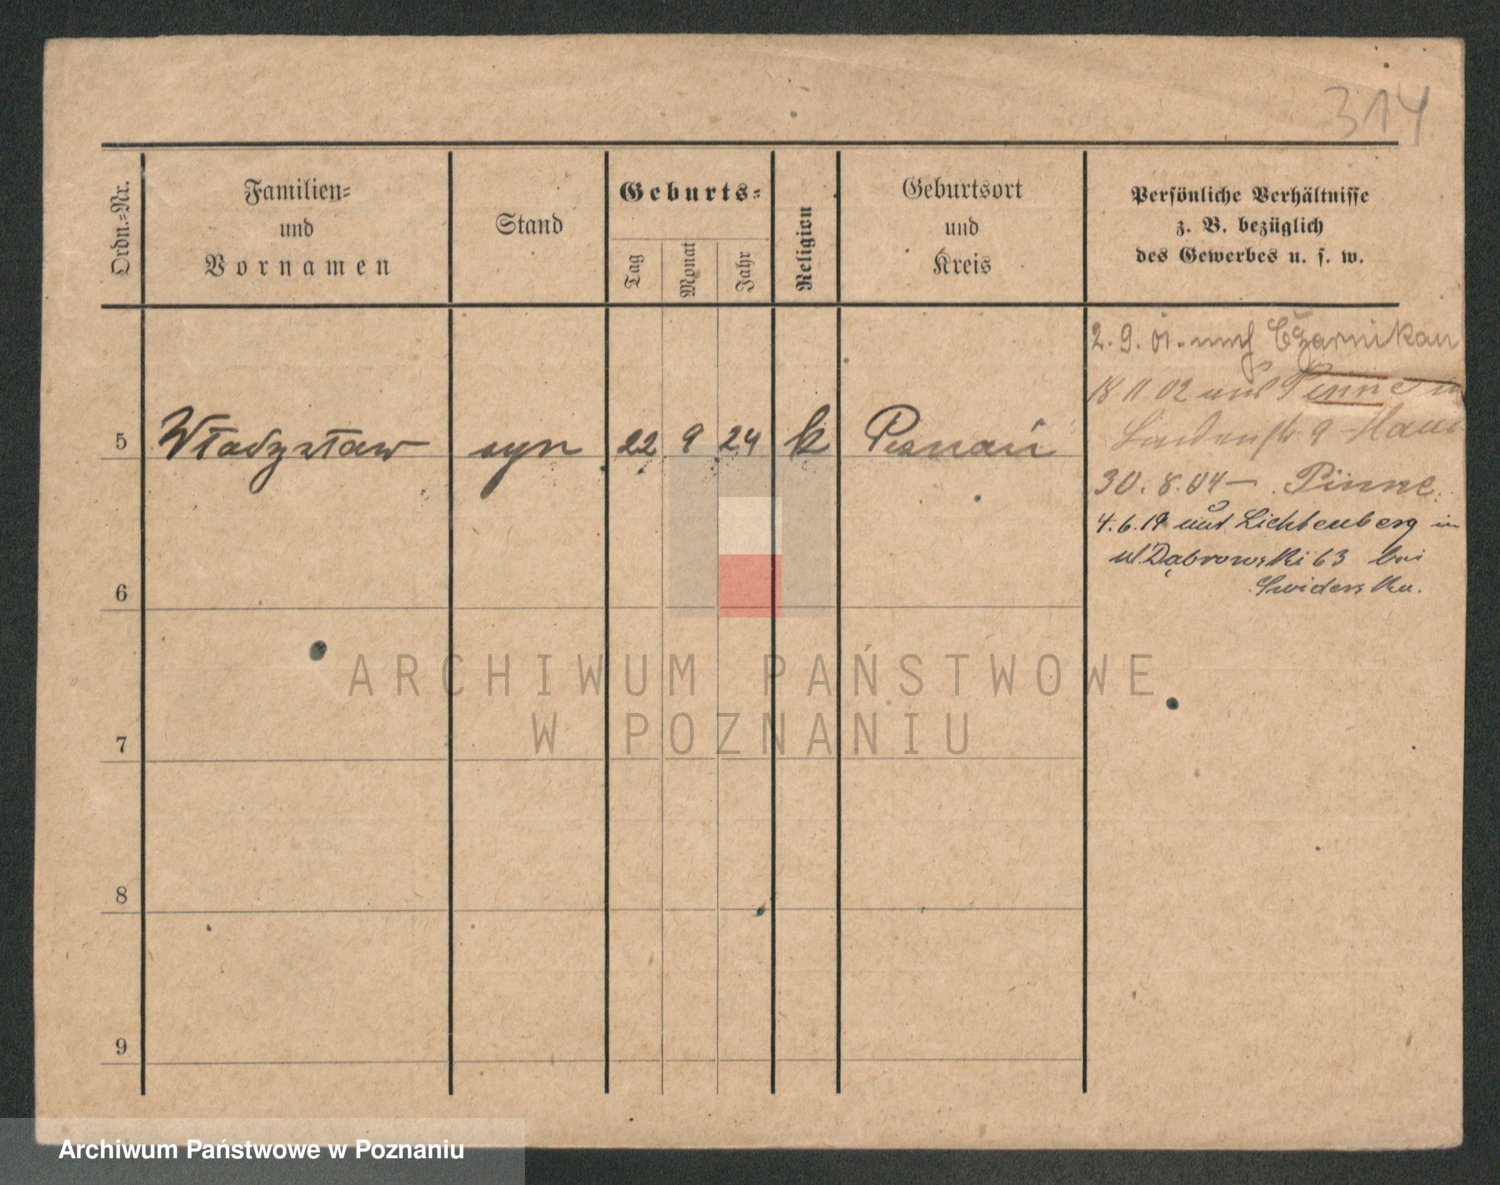 314
Ordn.-Nr.
Familien-
und
Vornamen
Stand
Geburts-
Tag
Monat
Jahr
Religion
Geburtsort
und
Kreis
Persönliche Verhältnisse
z. B. bezüglich
des Gewerbes u. s. w.
2. 9. 01. nach Czarnikau
18 11 02 aus Pinne in
9 Haus
30. 8. 04 – Pinne
5 Władysław syn 22 9 24 k Poznań
4. 6. 19 aus Lichtenberg in
ul. Dąbrowski 63 bei
6
7
8
9
ARCHIWUM PAŃSTWOWE
W POZNANIU
Archiwum Państwowe w Poznaniu